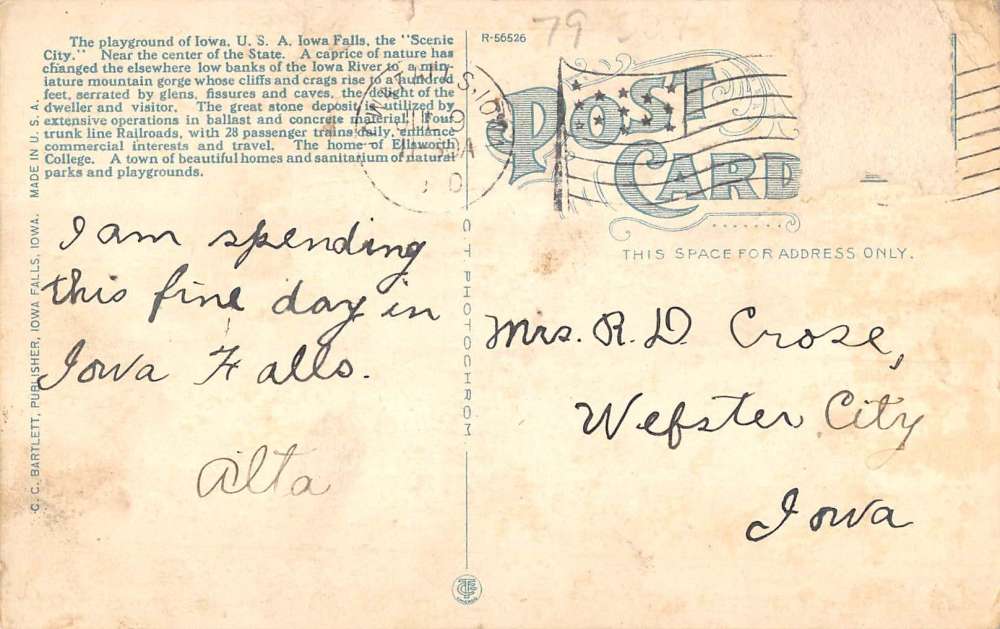 The playground of Iowa, U. S. A. Iowa Falls, the "Scenic
City." Near the center of the State. A caprice of nature has
changed the elsewhere low banks of the Iowa River to a min-
iature mountain gorge whose cliffs and crags rise to a hundred
feet, serrated by glens, fissures and caves, the delight of the
dweller and visitor. The great stone deposit is utilized by
extensive operations in ballast and concrete material. Four
trunk line Railroads, with 28 passenger trains daily, enhance
commercial interests and travel. The home of Ellsworth
College. A town of beautiful homes and sanitarium of natural
parks and playgrounds.
C. C. BARTLETT, PUBLISHER, IOWA FALLS, IOWA. MADE IN U. S. A.
I am spending
this fine day in
Iowa Falls.
Alta
C T PHOTOCHROM
R-56526
79
POST
CARD
THIS SPACE FOR ADDRESS ONLY.
Mrs. R. D. Crose,
Webster City
Iowa